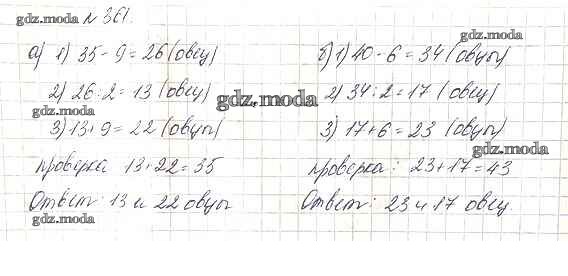 gdz.moda № 361.
а) 1) 35 - 9 = 26 (овец)
2) 26 : 2 = 13 (овец)
gdz.moda
3) 13 + 9 = 22 (овцы)
проверка 13 + 22 = 35
Ответ: 13 и 22 овцы
gdz.moda
gdz.moda
gdz.moda
б) 1) 40 - 6 = 34 (овцы)
2) 34 : 2 = 17 (овец)
3) 17 + 6 = 23 (овцы)
gdz.moda
проверка: 23 + 17 = 43
Ответ: 23 и 17 овец